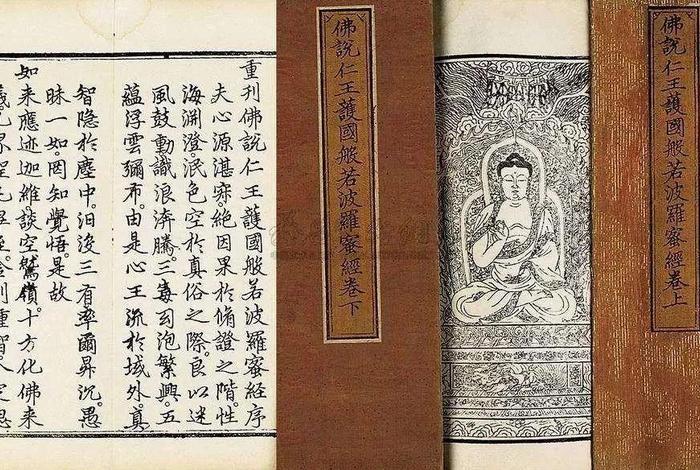 佛說仁王護國般若波羅蜜經卷上
佛說仁王護國般若波羅蜜經卷下
重刊佛說仁王護國般若波羅蜜經序
夫心源湛寂絕因果於脩證之階。性
海淵澄。泯色空於真俗之際。良以迷
風鼓動。識浪奔騰。三毒泡繁興。五
蘊浮雲彌布。由是心王流於域外。真
智隱於塵中。汩沒三有。率爾昇沉。愚
昧一如。罔知覺悟。是故
如来應迹迦維談空鷲嶺。十方化佛来